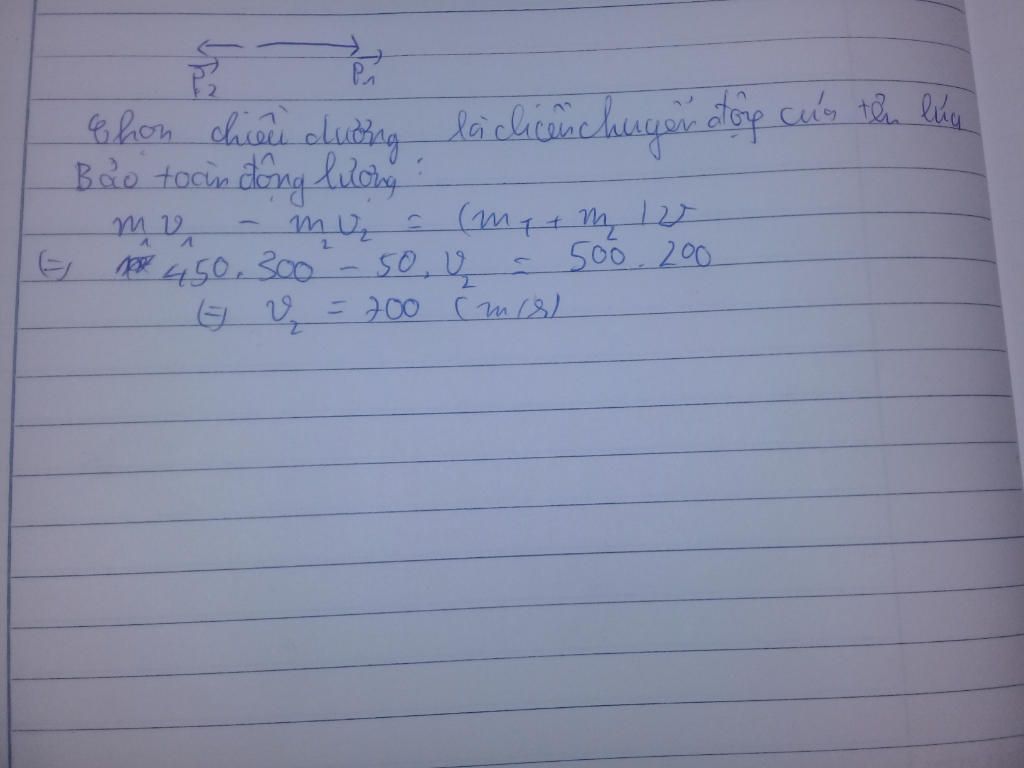 P₂ P₁
Chọn chiều dương là chiều chuyển động của tên lửa
Bảo toàn động lượng:
m₁v₁ - m₂v₂ = (m₁ + m₂)v
(=) 450.300 - 50.v₂ = 500.200
(=) v₂ = 700 (m/s)